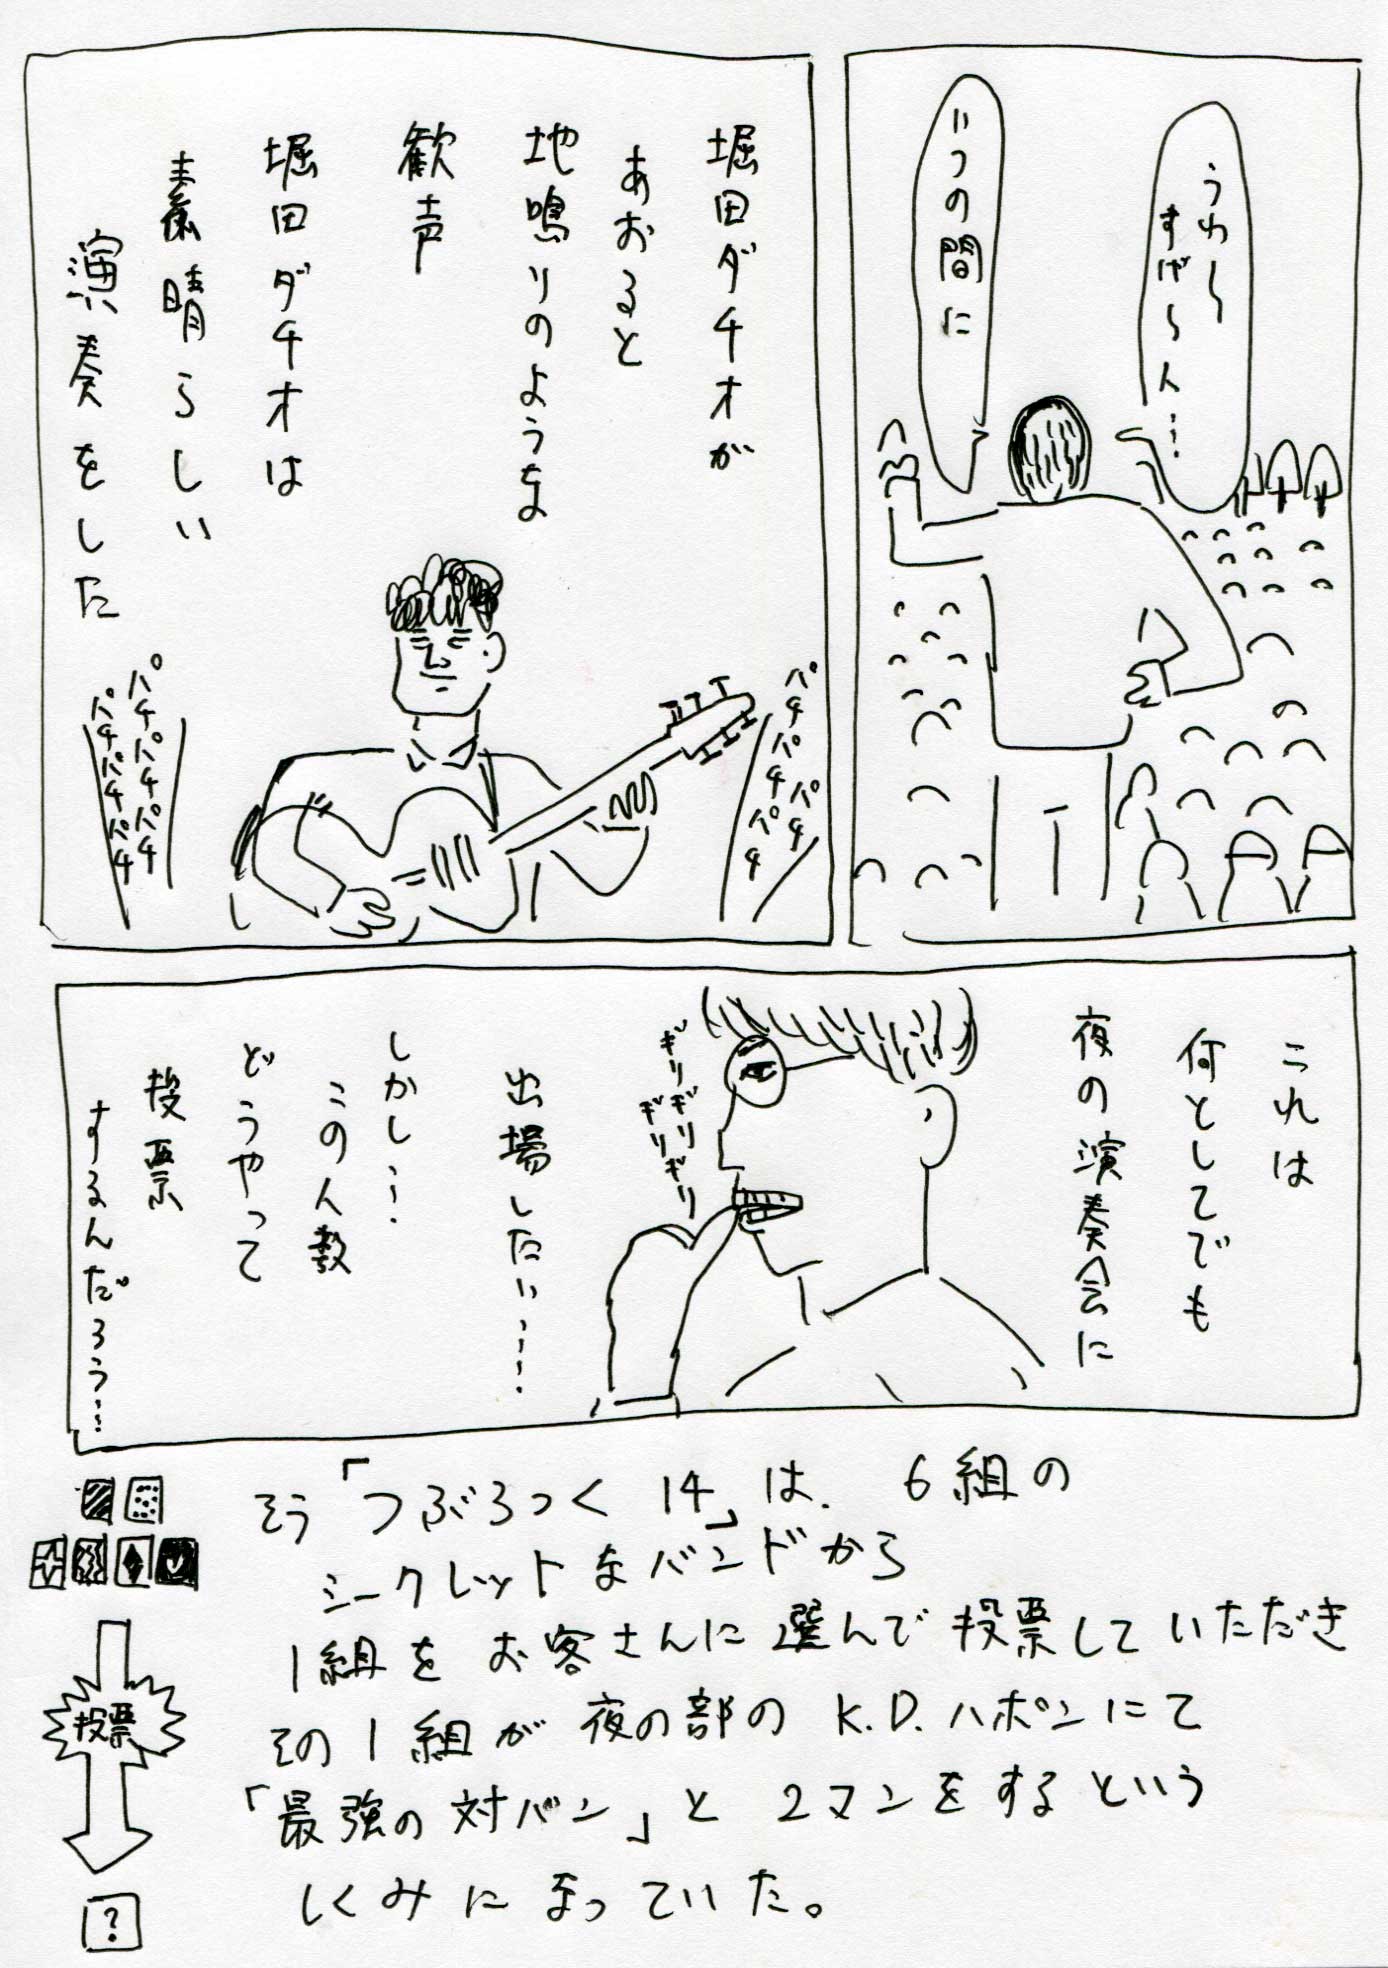 うわ〜
すげ〜人…
いつの間に
堀田ダチオが
あおると
地鳴りのような
歓声
堀田ダチオは
素晴らしい
演奏をした
パチパチパチ
パチパチパチ
パチパチパチ
パチパチ
これは
何としてでも
夜の演奏会に
ギリギリ
ギリギリ
出場したい……
しかし…
この人数
どうやって
投票
するんだろう…
そう「つぶろっく 14」は、6組の
シークレットなバンドから
1組を お客さんに選んで投票していただき
その1組が夜の部のK.D.ハポンにて
「最強の対バン」と2マンをするという
しくみになっていた。
投票
?